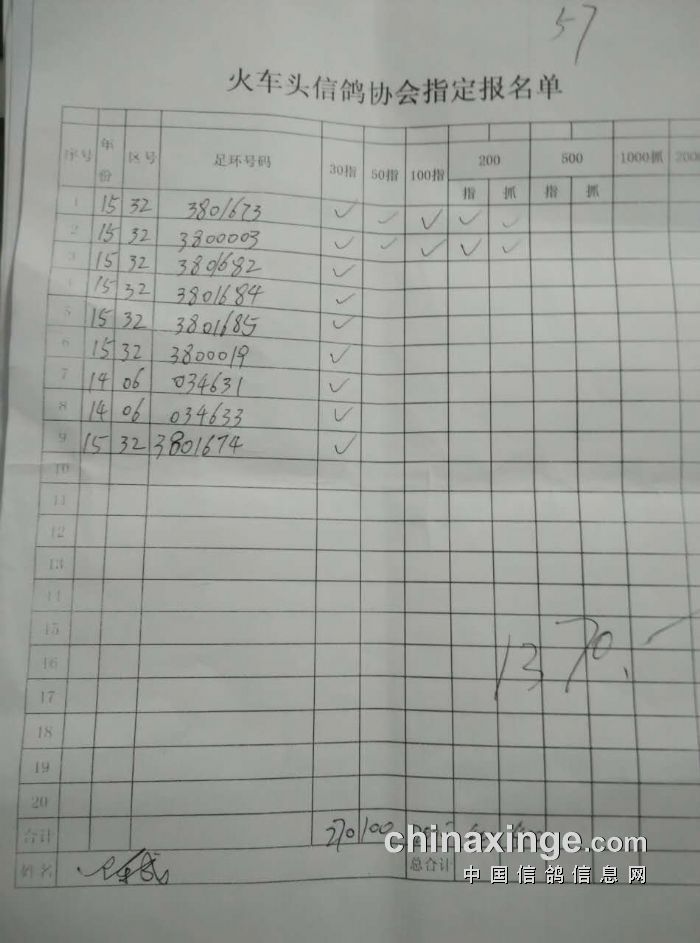 57
火车头信鸽协会指定报名单
序号 年份 区号 足环号码 30指 50指 100指 200 500 1000抓 2000
指 抓 指 抓
1 15 32 3801673 ✓ ✓ ✓ ✓ ✓
2 15 32 3800003 ✓ ✓ ✓ ✓ ✓
3 15 32 3801682 ✓
4 15 32 3801684 ✓
5 15 32 3801685 ✓
6 15 32 3800019 ✓
7 14 06 034631 ✓
8 14 06 034633 ✓
9 15 32 3801674 ✓
10
11
12
13
14
15
16
1370.
17
18
19
20
合计 270 100
姓名 总合计
chinaxinge.com
中国信鸽信息网